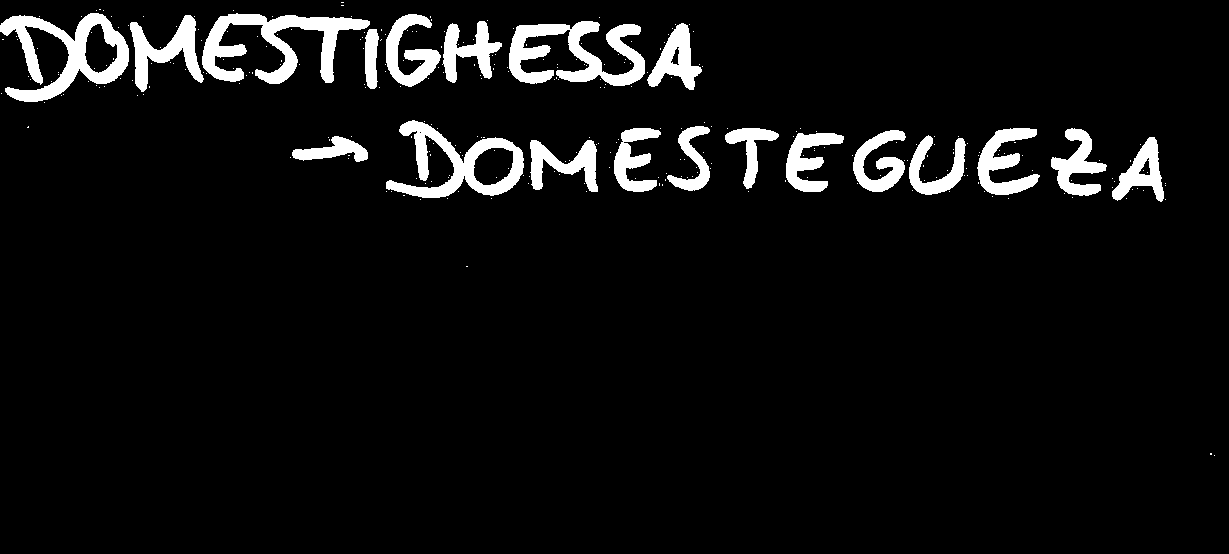 DOMESTIGHESSA
→ DOMESTEGUEZA